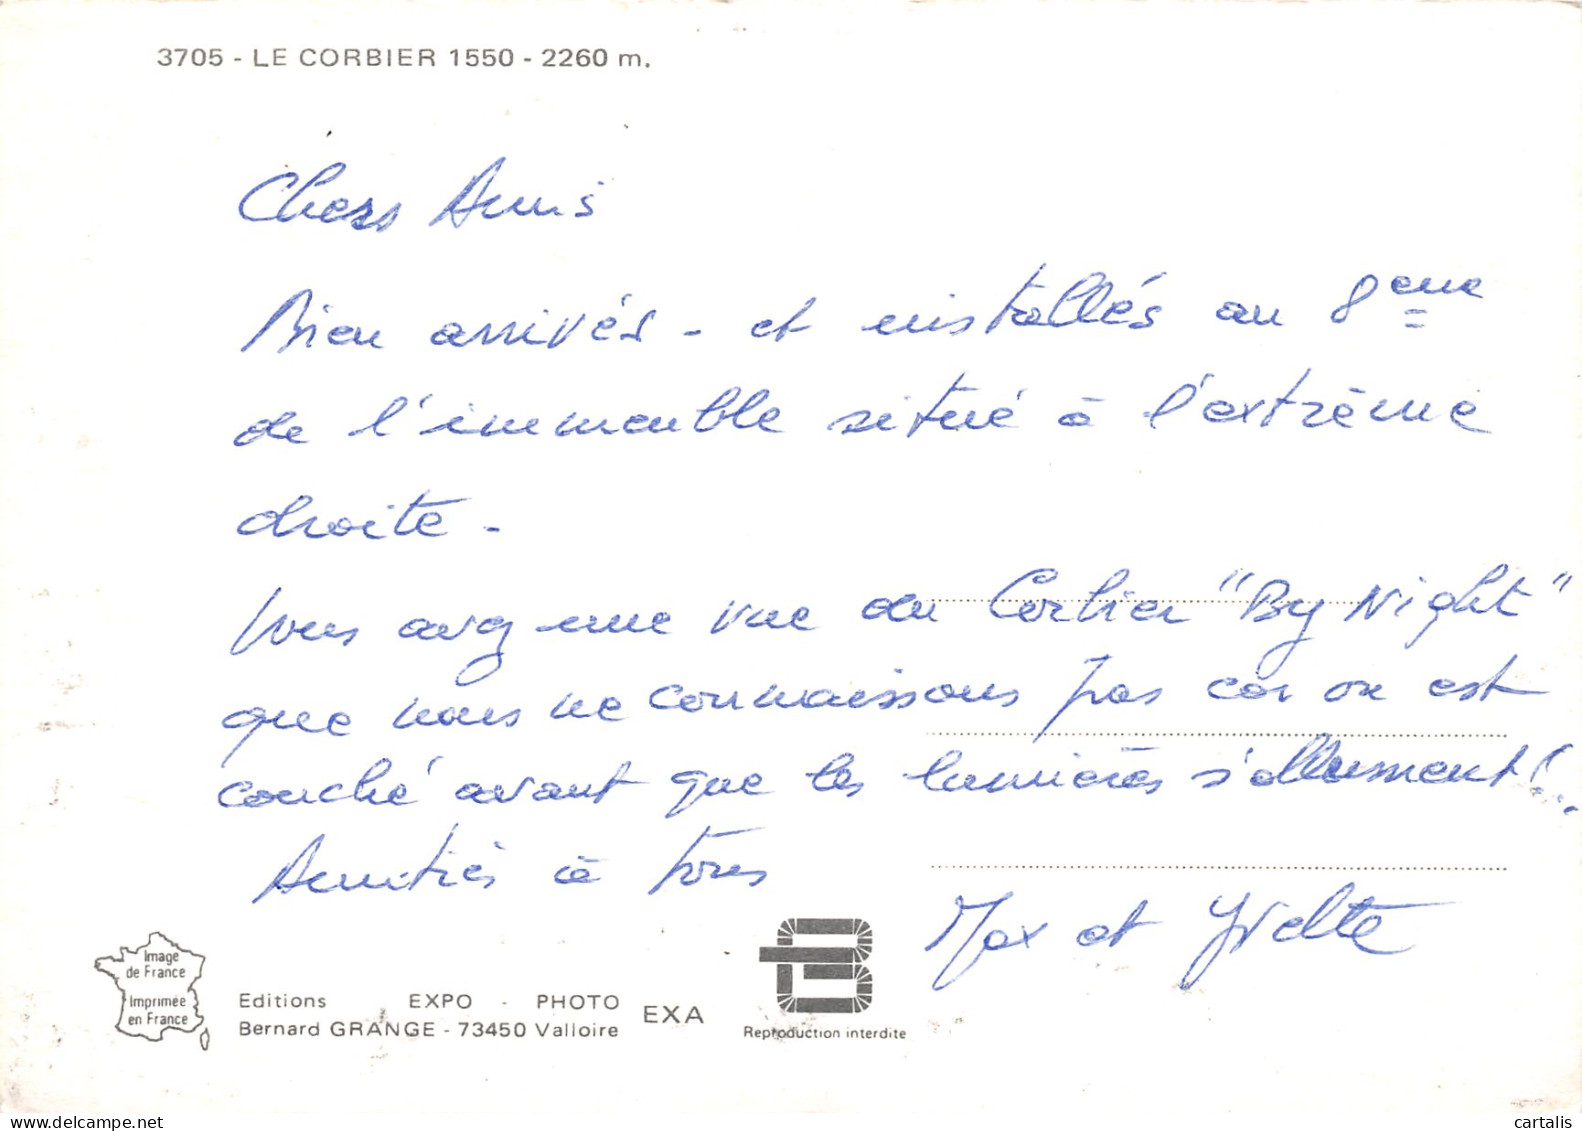 3705 - LE CORBIER 1550 - 2260 m.
Chers Amis
Bien arrivés - et installés au 8eme
de l'immeuble situé à l'extrème
droite -
Vous avez une vue du Corbier "By Night"
que nous ne connaissons pas car on est
couché avant que les lumières s'allument !..
Amitiés à tous
Max et Yvette
Image
de France
Imprimée
en France
Editions EXPO - PHOTO
Bernard GRANGE - 73450 Valloire
EXA
Reproduction interdite
cartalis